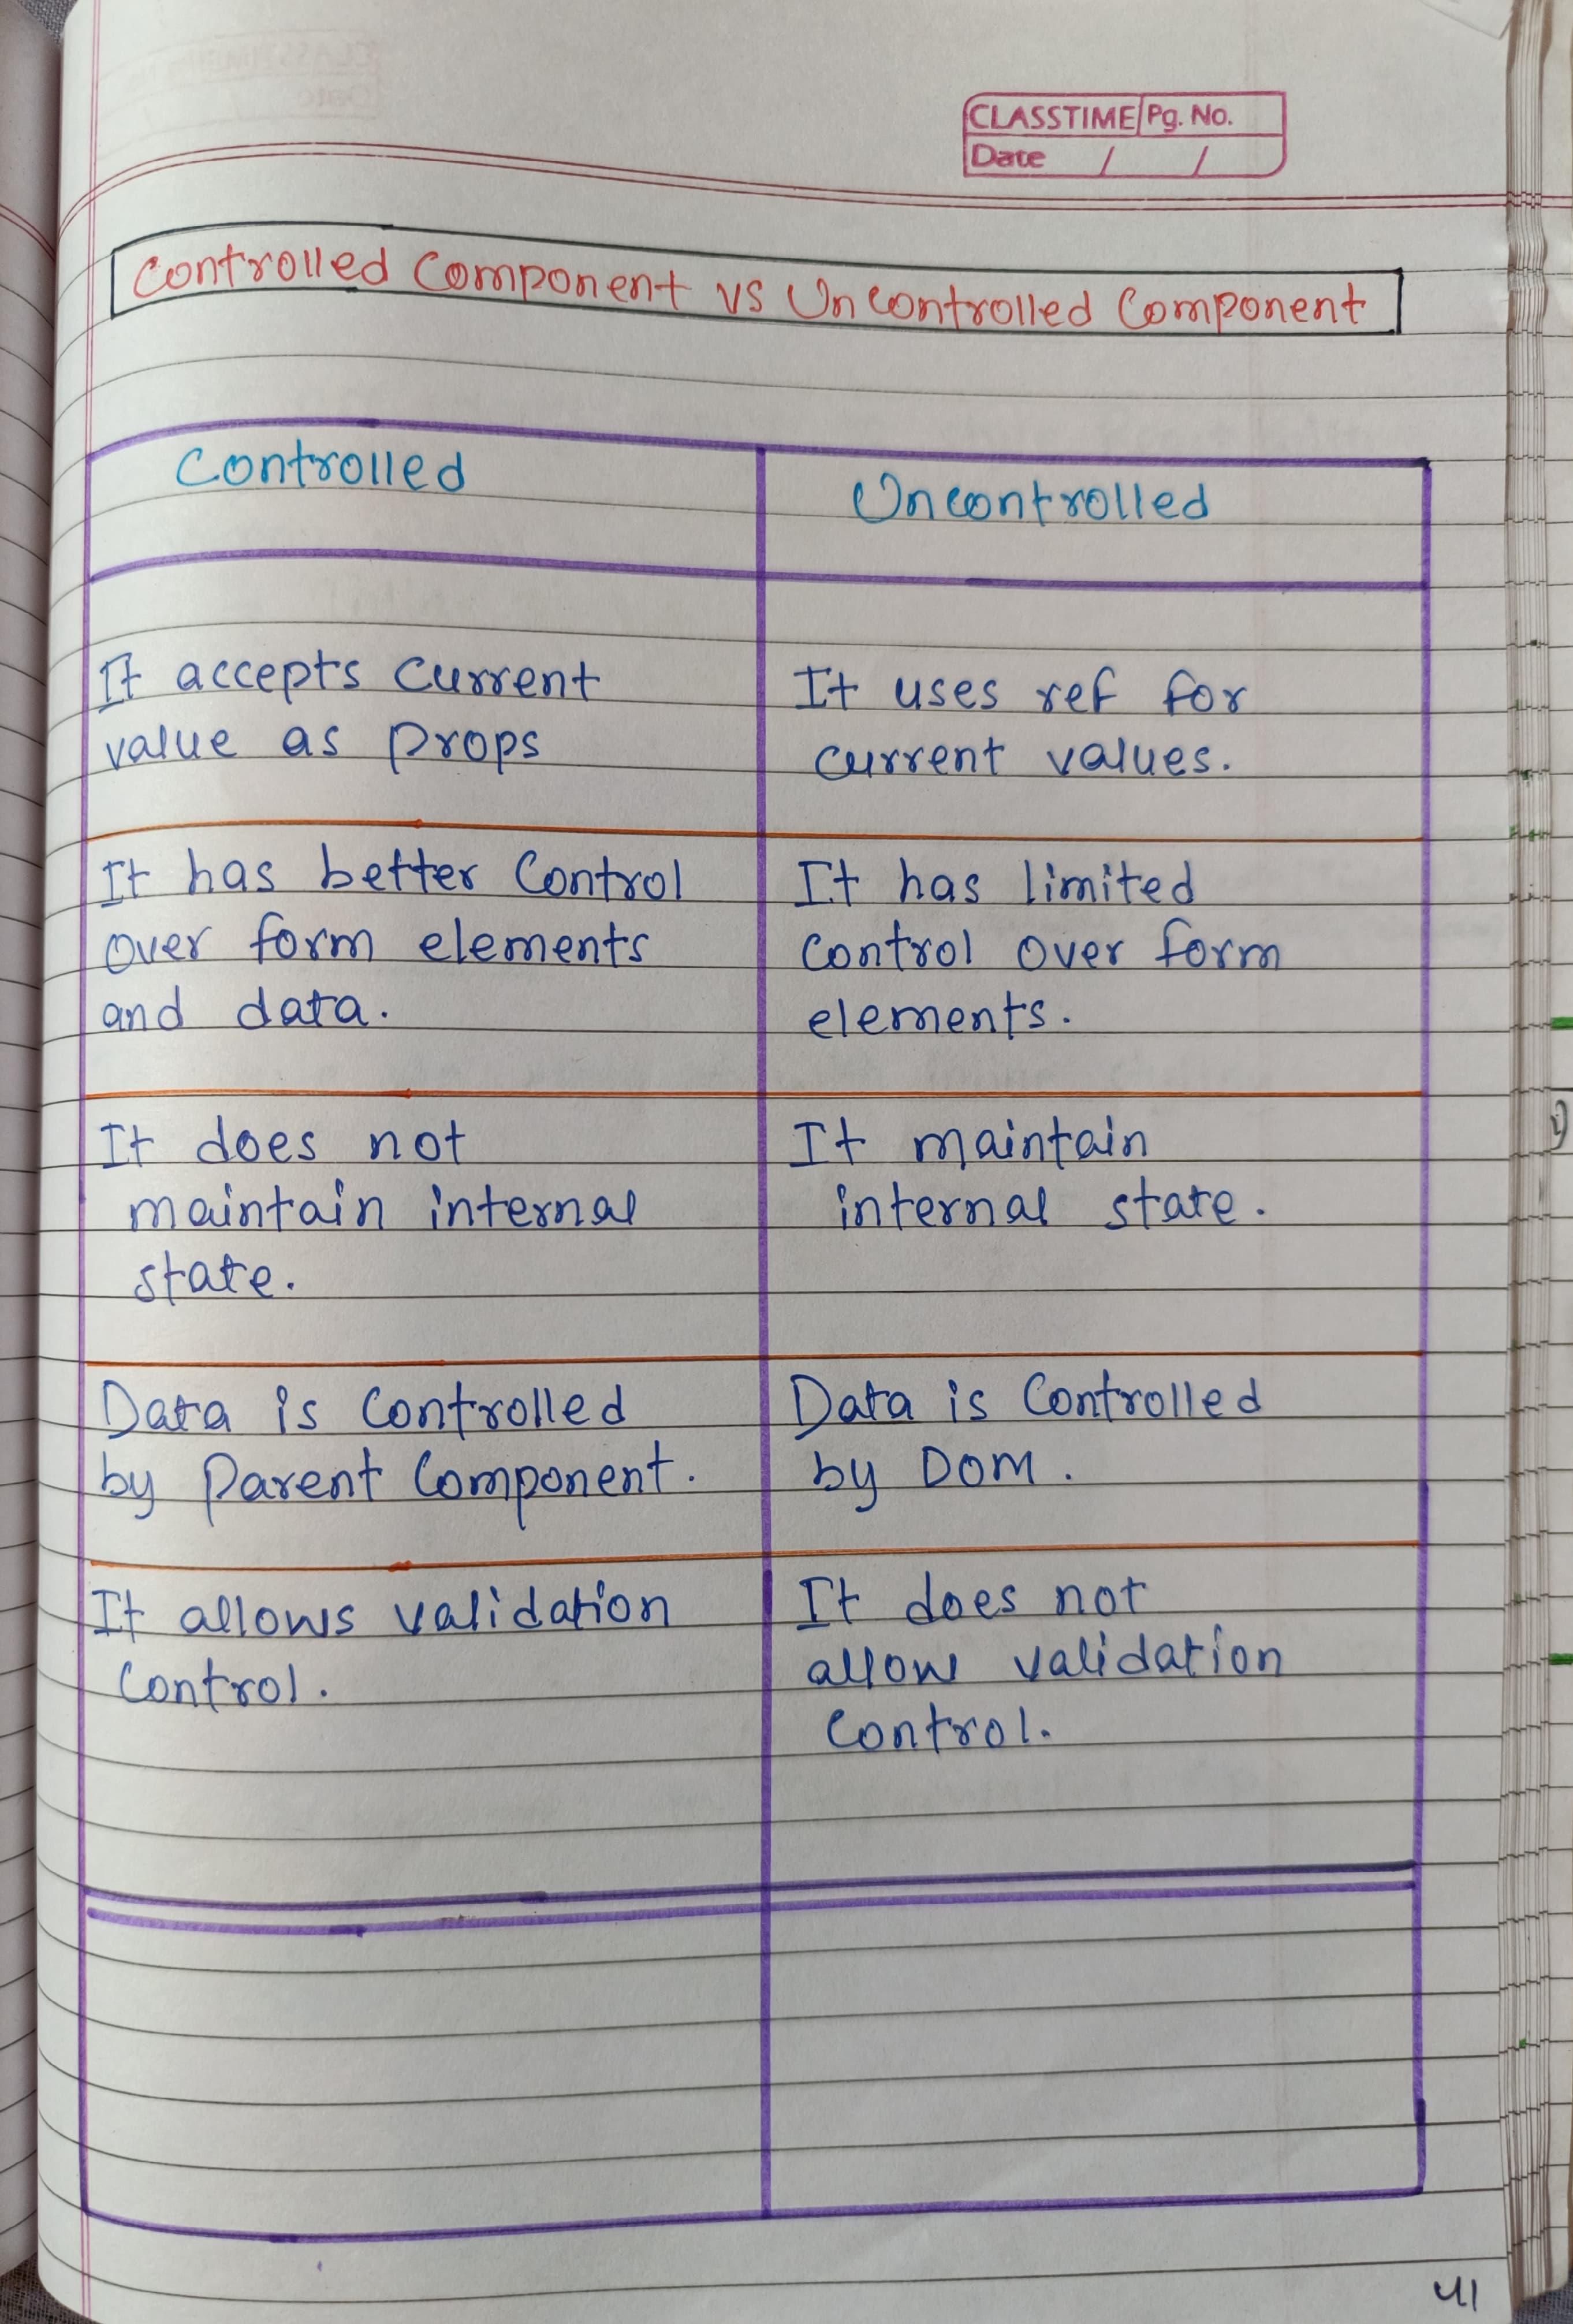 CLASSTIME Pg. No.
Date / /
Controlled Component vs Uncontrolled Component
Controlled
Uncontrolled
It accepts current
value as props
It uses ref for
current values.
It has better control
over form elements
and data.
It has limited
control over form
elements.
It does not
maintain internal
state.
It maintain
internal state.
Data is controlled
by Parent Component.
Data is controlled
by DOM.
It allows validation
control.
It does not
allow validation
control.
41